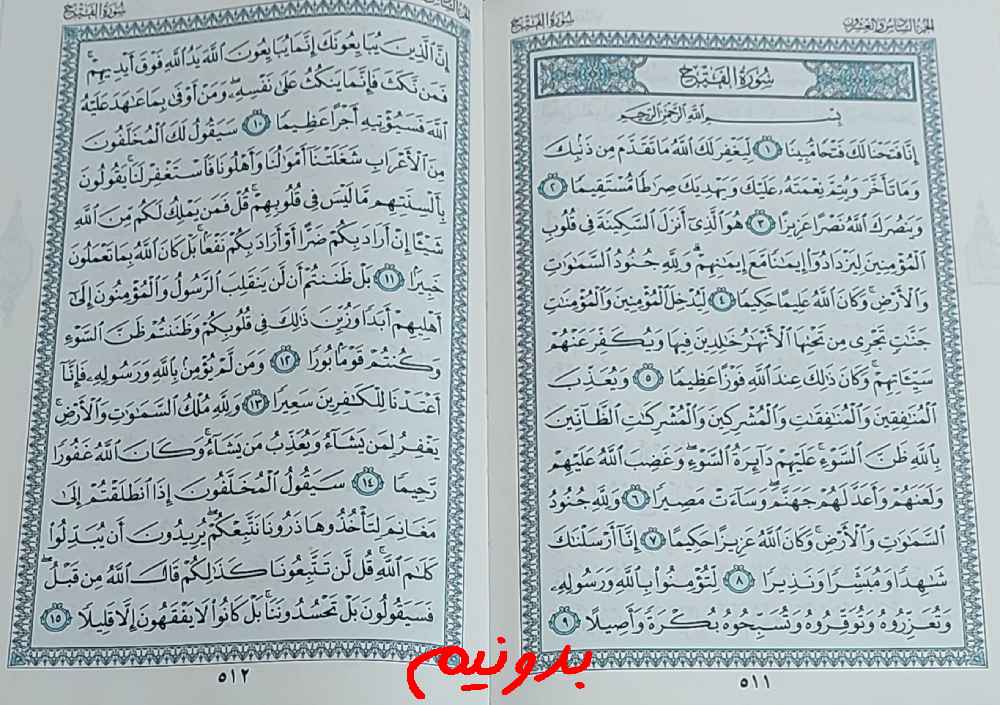 الجزء السادس والعشرون
سورة الفتح
سُورَةُ الفَتْحِ
بِسْمِ اللَّهِ الرَّحْمَٰنِ الرَّحِيمِ
إِنَّا فَتَحْنَا لَكَ فَتْحًا مُّبِينًا ١ لِّيَغْفِرَ لَكَ اللَّهُ مَا تَقَدَّمَ مِن ذَنۢبِكَ
وَمَا تَأَخَّرَ وَيُتِمَّ نِعْمَتَهُۥ عَلَيْكَ وَيَهْدِيَكَ صِرَٰطًا مُّسْتَقِيمًا ٢
وَيَنصُرَكَ اللَّهُ نَصْرًا عَزِيزًا ٣ هُوَ الَّذِىٓ أَنزَلَ السَّكِينَةَ فِى قُلُوبِ
الْمُؤْمِنِينَ لِيَزْدَادُوٓا۟ إِيمَٰنًا مَّعَ إِيمَٰنِهِمْ ۗ وَلِلَّهِ جُنُودُ السَّمَٰوَٰتِ
وَالْأَرْضِ ۚ وَكَانَ اللَّهُ عَلِيمًا حَكِيمًا ٤ لِّيُدْخِلَ الْمُؤْمِنِينَ وَالْمُؤْمِنَٰتِ
جَنَّٰتٍ تَجْرِى مِن تَحْتِهَا الْأَنْهَٰرُ خَٰلِدِينَ فِيهَا وَيُكَفِّرَ عَنْهُمْ
سَيِّـَٔاتِهِمْ ۚ وَكَانَ ذَٰلِكَ عِندَ اللَّهِ فَوْزًا عَظِيمًا ٥ وَيُعَذِّبَ
الْمُنَٰفِقِينَ وَالْمُنَٰفِقَٰتِ وَالْمُشْرِكِينَ وَالْمُشْرِكَٰتِ الظَّآنِّينَ
بِاللَّهِ ظَنَّ السَّوْءِ ۚ عَلَيْهِمْ دَآئِرَةُ السَّوْءِ ۖ وَغَضِبَ اللَّهُ عَلَيْهِمْ
وَلَعَنَهُمْ وَأَعَدَّ لَهُمْ جَهَنَّمَ ۖ وَسَآءَتْ مَصِيرًا ٦ وَلِلَّهِ جُنُودُ
السَّمَٰوَٰتِ وَالْأَرْضِ ۚ وَكَانَ اللَّهُ عَزِيزًا حَكِيمًا ٧ إِنَّآ أَرْسَلْنَٰكَ
شَٰهِدًا وَمُبَشِّرًا وَنَذِيرًا ٨ لِّتُؤْمِنُوا۟ بِاللَّهِ وَرَسُولِهِۦ
وَتُعَزِّرُوهُ وَتُوَقِّرُوهُ وَتُسَبِّحُوهُ بُكْرَةً وَأَصِيلًا ٩
٥١١
الجزء السادس
سورة الفتح
إِنَّ الَّذِينَ يُبَايِعُونَكَ إِنَّمَا يُبَايِعُونَ اللَّهَ يَدُ اللَّهِ فَوْقَ أَيْدِيهِمْ ۚ
فَمَن نَّكَثَ فَإِنَّمَا يَنكُثُ عَلَىٰ نَفْسِهِۦ ۖ وَمَنْ أَوْفَىٰ بِمَا عَٰهَدَ عَلَيْهُ
اللَّهَ فَسَيُؤْتِيهِ أَجْرًا عَظِيمًا ١٠ سَيَقُولُ لَكَ الْمُخَلَّفُونَ
مِنَ الْأَعْرَابِ شَغَلَتْنَآ أَمْوَٰلُنَا وَأَهْلُونَا فَاسْتَغْفِرْ لَنَا ۚ يَقُولُونَ
بِأَلْسِنَتِهِم مَّا لَيْسَ فِى قُلُوبِهِمْ ۚ قُلْ فَمَن يَمْلِكُ لَكُم مِّنَ اللَّهِ
شَيْـًٔا إِنْ أَرَادَ بِكُمْ ضَرًّا أَوْ أَرَادَ بِكُمْ نَفْعًۢا ۚ بَلْ كَانَ اللَّهُ بِمَا تَعْمَلُونَ
خَبِيرًۢا ١١ بَلْ ظَنَنتُمْ أَن لَّن يَنقَلِبَ الرَّسُولُ وَالْمُؤْمِنُونَ إِلَىٰٓ
أَهْلِيهِمْ أَبَدًا وَزُيِّنَ ذَٰلِكَ فِى قُلُوبِكُمْ وَظَنَنتُمْ ظَنَّ السَّوْءِ
وَكُنتُمْ قَوْمًۢا بُورًا ١٢ وَمَن لَّمْ يُؤْمِنۢ بِاللَّهِ وَرَسُولِهِۦ فَإِنَّآ
أَعْتَدْنَا لِلْكَٰفِرِينَ سَعِيرًا ١٣ وَلِلَّهِ مُلْكُ السَّمَٰوَٰتِ وَالْأَرْضِ ۚ
يَغْفِرُ لِمَن يَشَآءُ وَيُعَذِّبُ مَن يَشَآءُ ۚ وَكَانَ اللَّهُ غَفُورًا
رَّحِيمًا ١٤ سَيَقُولُ الْمُخَلَّفُونَ إِذَا انطَلَقْتُمْ إِلَىٰ
مَغَانِمَ لِتَأْخُذُوهَا ذَرُونَا نَتَّبِعْكُمْ ۖ يُرِيدُونَ أَن يُبَدِّلُوا۟
كَلَٰمَ اللَّهِ ۚ قُل لَّن تَتَّبِعُونَا كَذَٰلِكُمْ قَالَ اللَّهُ مِن قَبْلُ ۖ
فَسَيَقُولُونَ بَلْ تَحْسُدُونَنَا ۚ بَلْ كَانُوا۟ لَا يَفْقَهُونَ إِلَّا قَلِيلًا ١٥
٥١٢
بدونیم